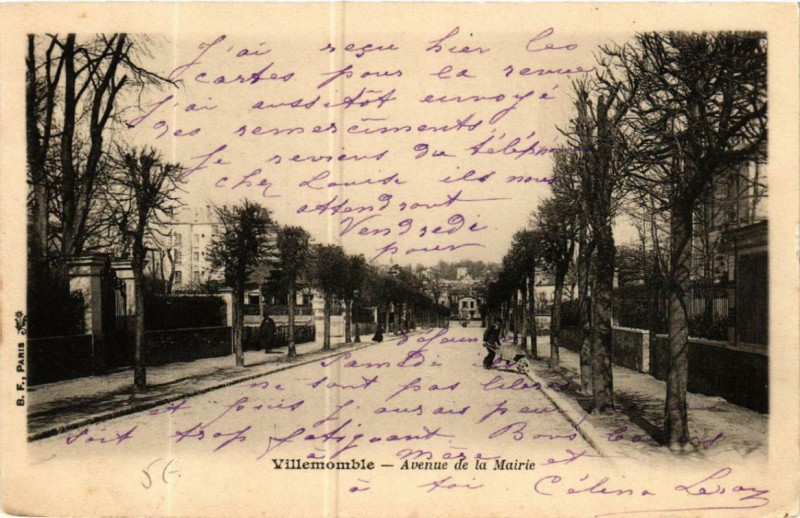 J'ai reçu hier les
cartes pour la revue
J'ai aussitôt envoyé
des remerciments,
Je reviens du téléph
chez Louise ils nous
attendront
Vendredi
pour
Samedi
ne sont pas libres
et puis j'aurais peur
soit trop fatiguant Bons
à Mère et
à toi Célina Leroy
Villemomble — Avenue de la Mairie
B. F., PARIS
5f